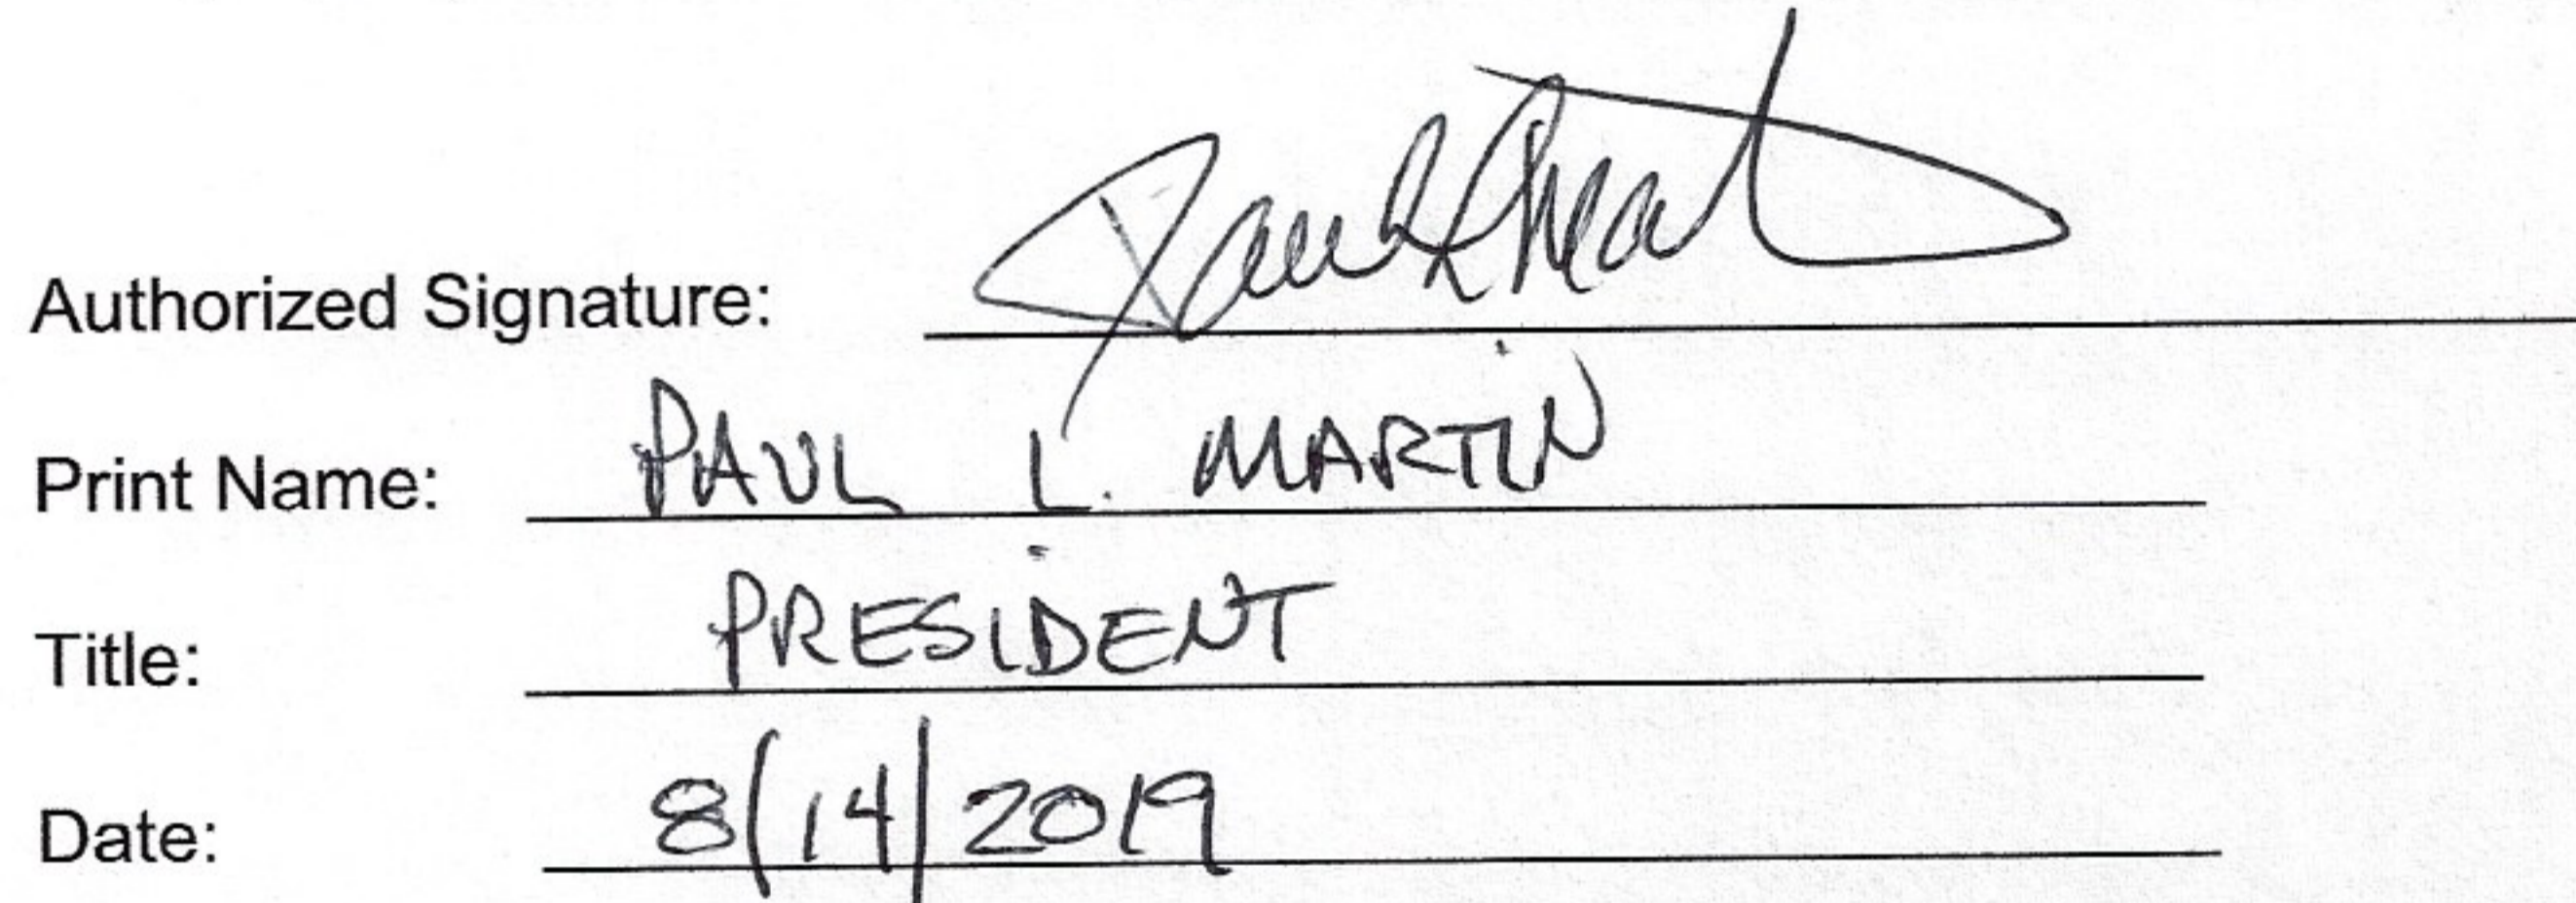 Authorized Signature:
Print Name: PAUL L. MARTIN
Title: PRESIDENT
Date: 8/14/2019